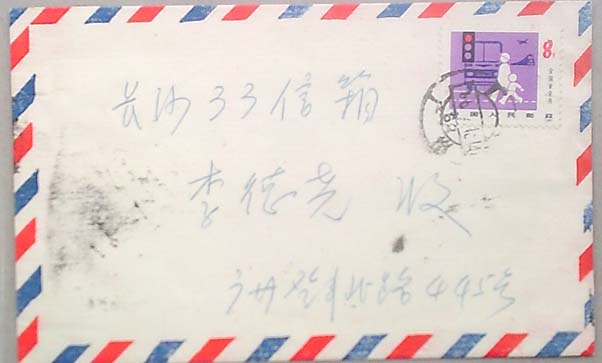 8分
全国安全月
中国人民邮政
长沙33信箱
李德尧 收
广州 北路445号